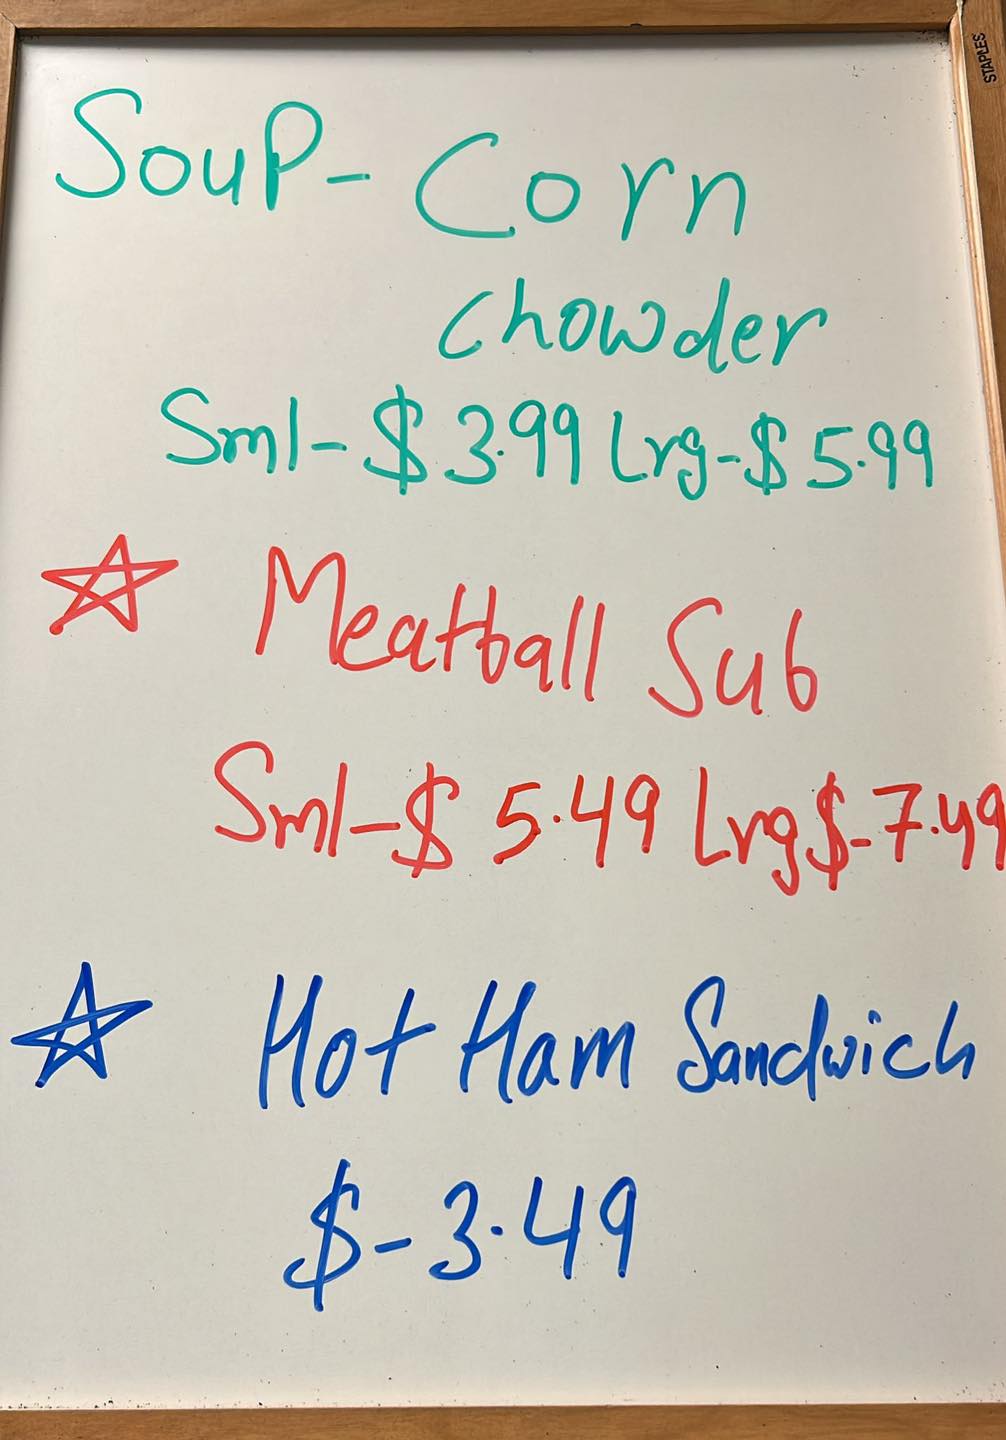 STAPLES
SouP- Corn
chowder
Sml-$ 3.99 Lrg-$ 5.99
Meatball Sub
Sml-$ 5.49 Lrg$-7.49
Hot Ham Sandwich
$-3.49